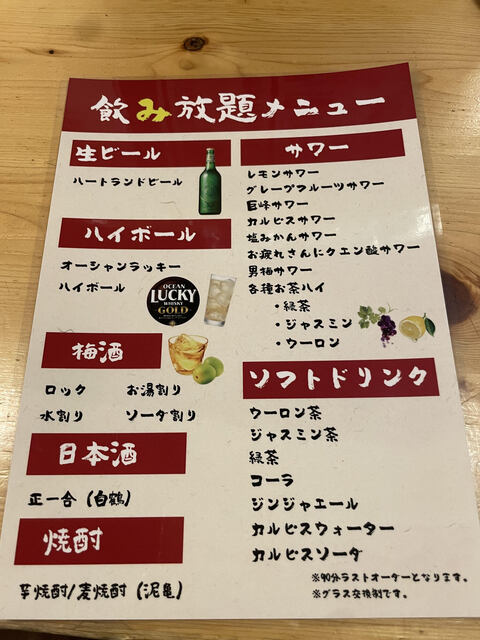 飲み放題メニュー
生ビール
ハートランドビール
ハイボール
オーシャンラッキー
ハイボール
OCEAN
LUCKY
WHISKY
GOLD
梅酒
ロック お湯割り
水割り ソーダ割り
日本酒
正一合（白鶴）
焼酎
芋焼酎/麦焼酎（泥亀）
サワー
レモンサワー
グレープフルーツサワー
巨峰サワー
カルピスサワー
塩みかんサワー
お疲れさんにクエン酸サワー
男梅サワー
各種お茶ハイ
・緑茶
・ジャスミン
・ウーロン
ソフトドリンク
ウーロン茶
ジャスミン茶
緑茶
コーラ
ジンジャエール
カルピスウォーター
カルピスソーダ
※90分ラストオーダーとなります。
※グラス交換制です。